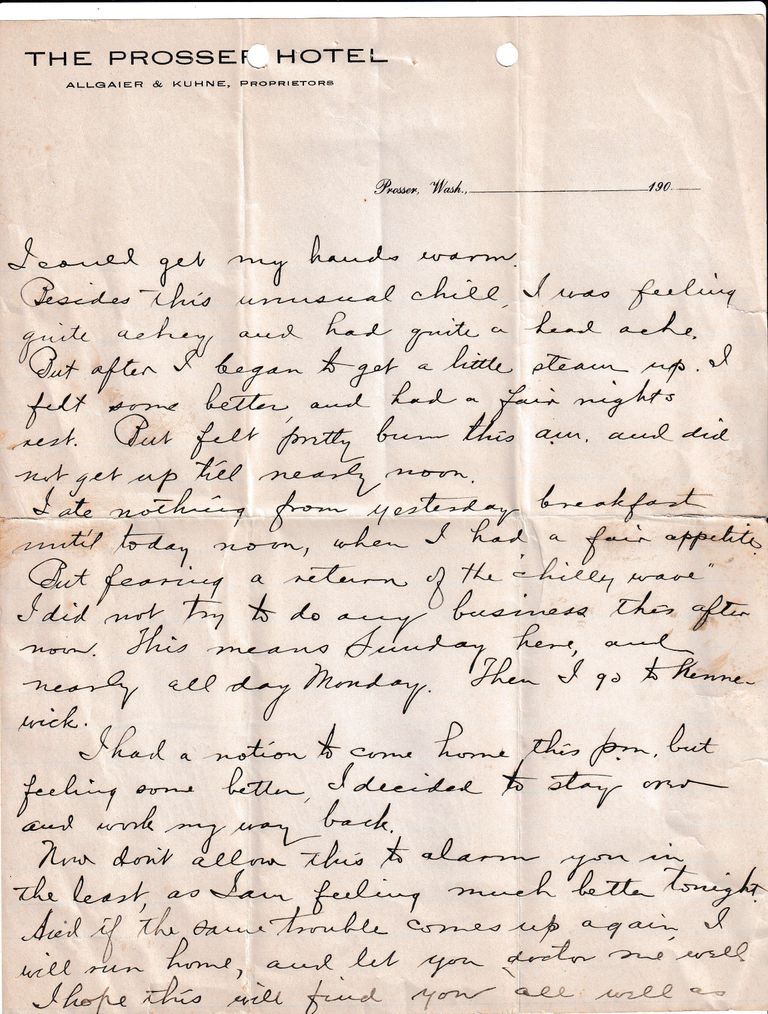 THE PROSSER HOTEL
ALLGAIER & KUHNE, PROPRIETORS
Prosser, Wash., 190
I could get my hands warm.
Besides this unusual chill, I was feeling
quite achey and had quite a head ache.
But after I began to get a little steam up. I
felt some better, and had a fair nights
rest. But felt pretty bum this a.m. and did
not get up till nearly noon.
I ate nothing from yesterday breakfast
until today noon, when I had a fair appetite.
But fearing a return of the "chilly wave"
I did not try to do any business this after
noon. This means Sunday here, and
nearly all day Monday. Then I go to Kenne-
wick.
I had a notion to come home this p.m. but
feeling some better, I decided to stay over
and work my way back.
Now don't allow this to alarm you in
the least, as I am feeling much better tonight.
And if the same trouble comes up again, I
will run home, and let you doctor me well.
I hope this will find you all well as